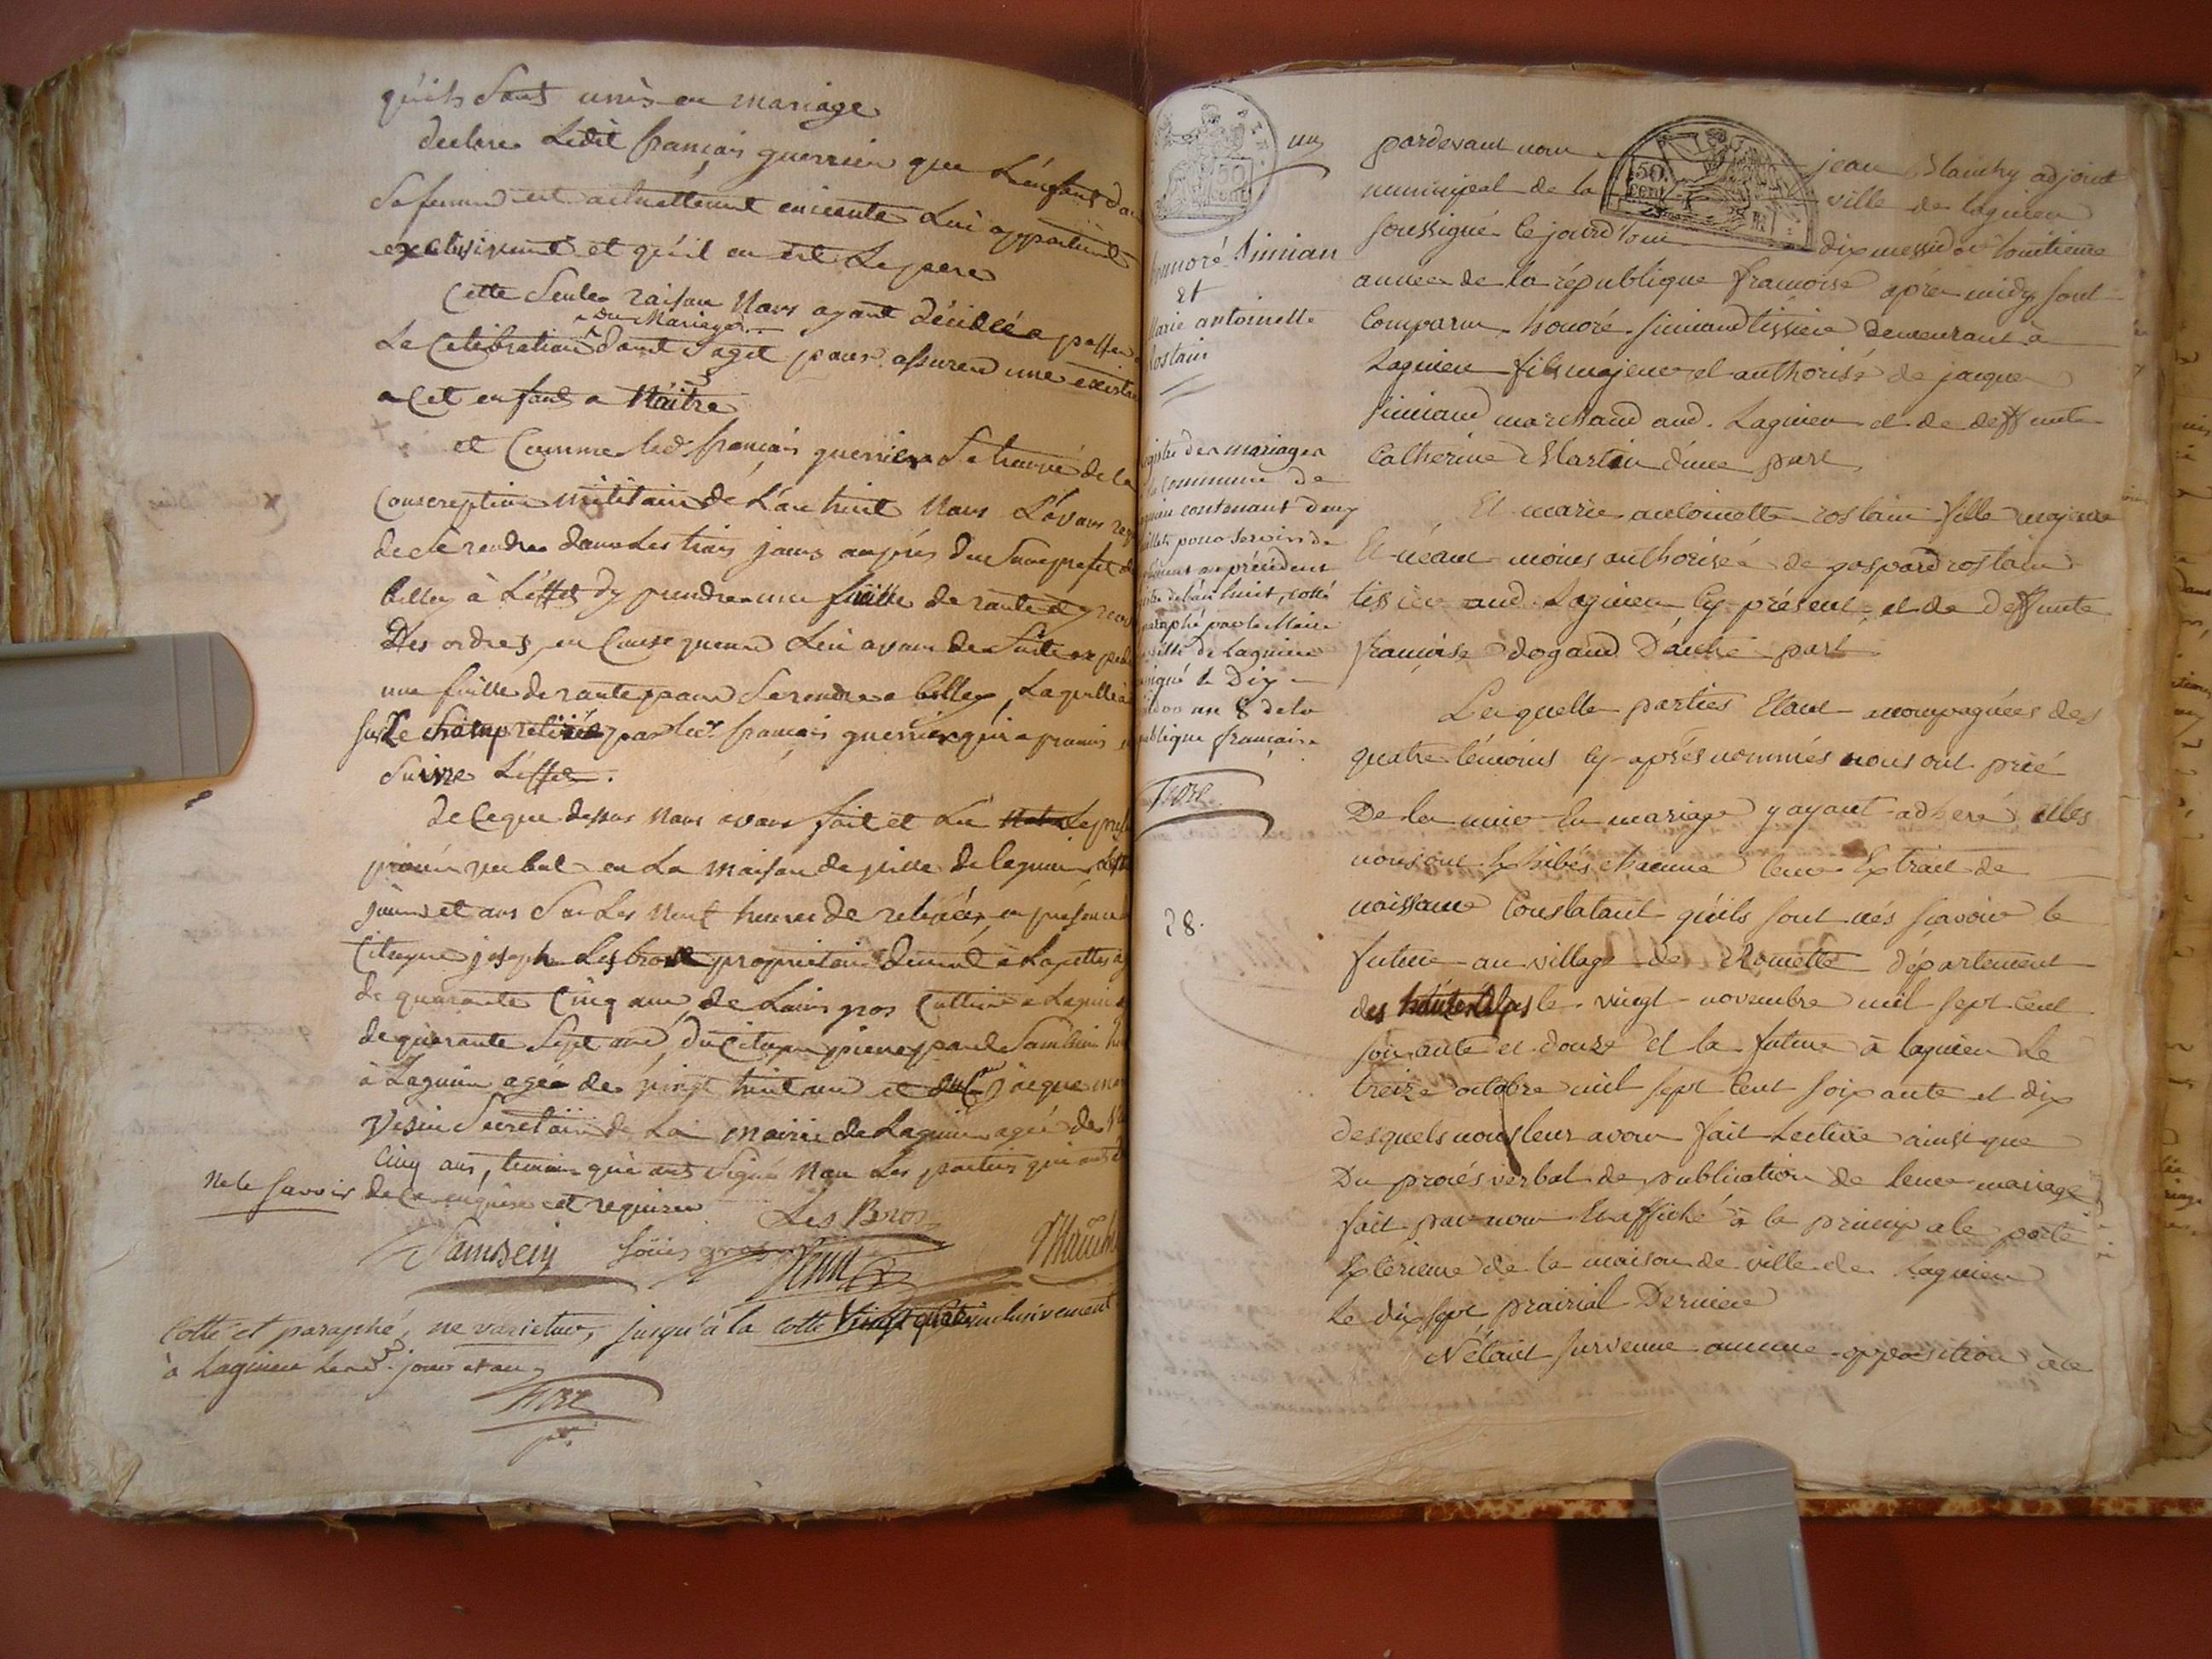 qu'ils sont unis en mariage
declare Ledit français guerrier que L'enfant don
sa femme est actuellement enceinte Lui appartient
exclusivement et qu'il en est Le pere
Cette Seule raison Nous ayant décidée a passer
du Mariage
La Celebration dont S'agit pour assurer une existan
a Cet enfant a Naitre
et Comme led. français guerrier Se trouve de la
Conscription militaire de L'an huit Nous L'avons req
de Se rendre dans Les trois jours auprés du Sousprefet de
belley à L'effet dy prendre une fuille de route et y recev
Des ordres, en Consequence Lui avons de Suite expedié
une fuille de route pour Se rendre a belley, Laquelle a
Sur Le Champ retirée par led. français guerrier qui a promis
Suivre L'effet.
de Ce que dessus Nous avons fait et Lu Le pres
procés verbal en La maison de ville de lagnieu
jour et ans Sur Les Neuf heures de relevée, en presence
Citoyen joseph Les bros propriétaire demt à
de quarante Cinq ans, de Louis gros Cultiv. a Lagnieu
de quarante Sept ans, du Citoyen pierre paul Samsein
à Lagnieu agée de vingt huit ans et du Cen jacque
Vesin Secretaire de La mairie de Lagnieu agée de
Cinq ans, temoins qui ont Signé Non Les parties qui ont d
ne le Savoir de Ce enquis et requises
Les Bros
Samsein Loüis gros
Cotté et paraphé, ne varietur, jusqu'à la cotte Vingt quatre inclusivement
à Lagnieu Led. jour et an
un
50 cent
50 cent
honnoré Simian
Et
Marie antoinette
Rostain
registre des mariages
la Commune de
Lagnieu contenant deux
feuillets pour servir de
an précédent
de l'an huit, cotté
paraphé par le Maire
ville de lagnieu
le Dix
an 8 de la
république française
28.
pardevant nous jean Mauchy adjoint
municipal de la ville de lagnieu
soussigné cejourd'hui dix messidor huitieme
année de la république françoise aprés midy sont
Comparus honoré simiand tissier demeurant à
Lagnieu fils majeur et authorisé de jacque
simiand marchand aud. Lagnieu et de deffunte
Catherine Martin d'une part
Et marie antoinette rostain fille majeure
Et néanmoins authorisée de gaspard rostain
tissier aud. Lagnieu Cy présent, et de deffunte
françoise dogand D'autre part
Lesquelle parties Etant acompagnées des
quatre témoins Cy-après nommés nous ont prié
De les unir En mariage y ayant adheré, elles
nous ont Exhibés chacune leur Extrait de
naissance Constatant qu'ils sont nés sçavoir le
futur au village de Romette département
des hautes Alpes le vingt novembre mil sept Cent
soixante et douze et la future à lagnieu Le
treize octobre mil sept Cent soixante et dix
desquels nous leur avons fait Lecture ainsi que
Du procés verbal de publication de leur mariage
fait par nous Et affiché à la principale porte
Extérieure de la maison de ville de Lagnieu
Le dix sept prairial Dernier
N'étant survenue aucune opposition à ce